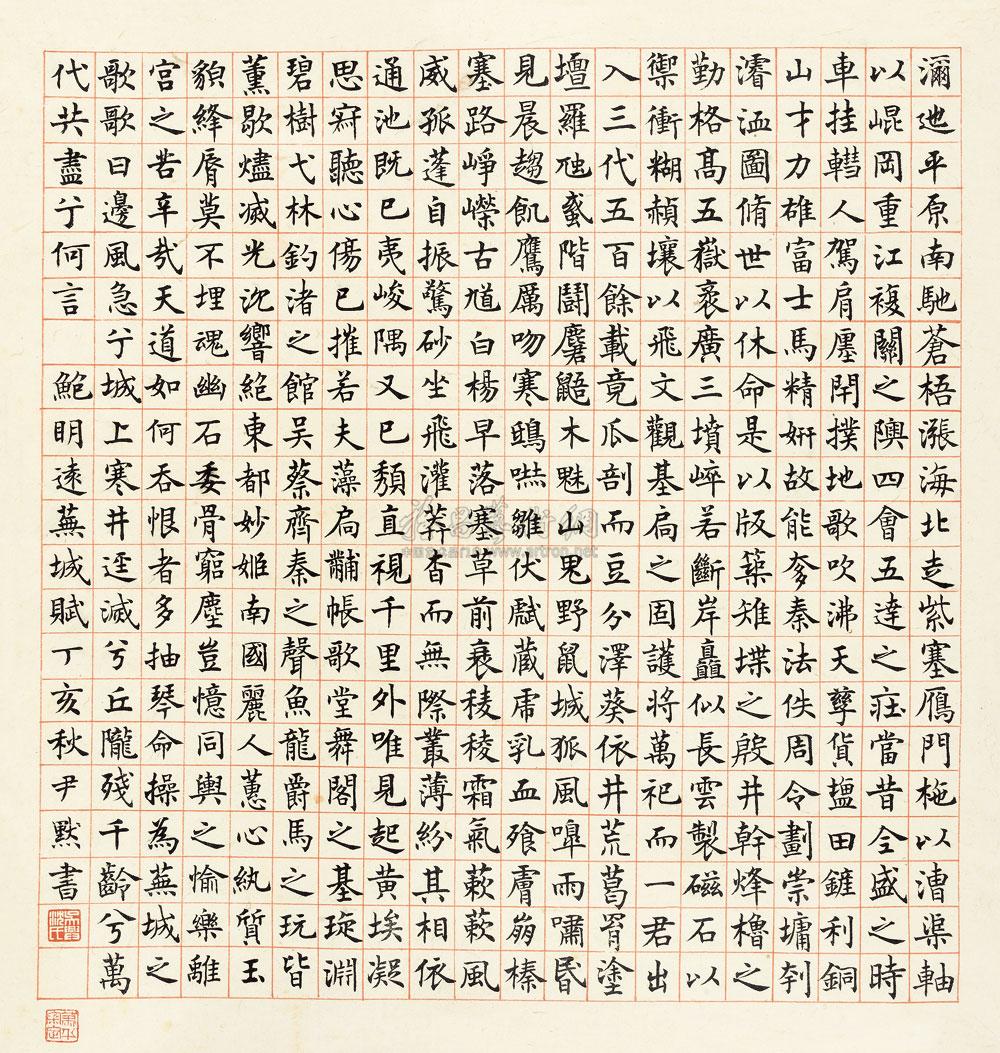 濔迆平原南馳蒼梧漲海北走紫塞鴈門柂以漕渠軸
以崐岡重江複關之隩四會五達之莊當昔全盛之時
車挂轊人駕肩廛閈撲地歌吹沸天孳貨鹽田鏟利銅
山才力雄富士馬精妍故能奓秦法佚周令劃崇墉刳
濬洫圖脩世以休命是以版築雉堞之殷井幹烽櫓之
勤格高五嶽袤廣三墳崪若斷岸矗似長雲製磁石以
禦衝糊赬壤以飛文觀基扃之固護將萬祀而一君出
入三代五百餘載竟瓜剖而豆分澤葵依井荒葛罥塗
壇羅虺蜮階鬪麏鼯木魅山鬼野鼠城狐風嘷雨嘯昏
見晨趨飢鷹厲吻寒鴟嚇雛伏虣藏虎乳血飡膚崩榛
塞路崢嶸古馗白楊早落塞草前衰稜稜霜氣蔌蔌風
威孤蓬自振驚砂坐飛灌莽杳而無際叢薄紛其相依
通池既已夷峻隅又已頹直視千里外唯見起黃埃凝
思寂聽心傷已摧若夫藻扃黼帳歌堂舞閣之基琁淵
碧樹弋林釣渚之館吳蔡齊秦之聲魚龍爵馬之玩皆
薰歇燼滅光沈響絕東都妙姬南國麗人蕙心紈質玉
貌絳脣莫不埋魂幽石委骨窮塵豈憶同輿之愉樂離
宮之苦辛哉天道如何吞恨者多抽琴命操為蕪城之
歌歌曰邊風急兮城上寒井逕滅兮丘隴殘千齡兮萬
代共盡兮何言 鮑明遠蕪城賦丁亥秋尹默書
吳興沈氏
雅昌藝術網
www.artron.net